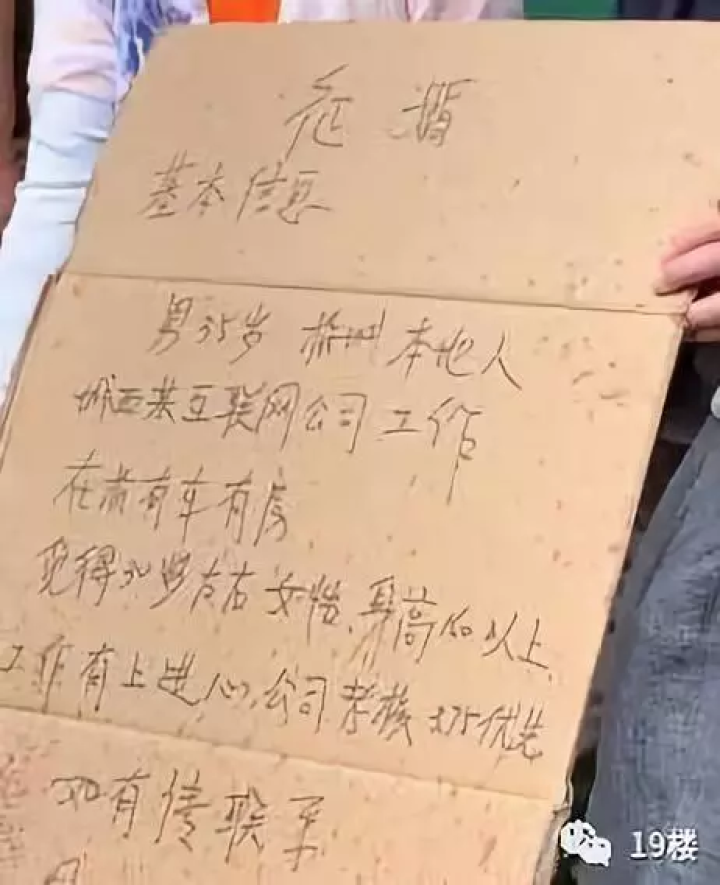 征婚
基本信息
男35岁 杭州本地人
城西某互联网公司工作
在 有车有房
觅得30岁左右女性、身高160以上
工作有上进心,公司考核3.75优先
如有情联系
19楼